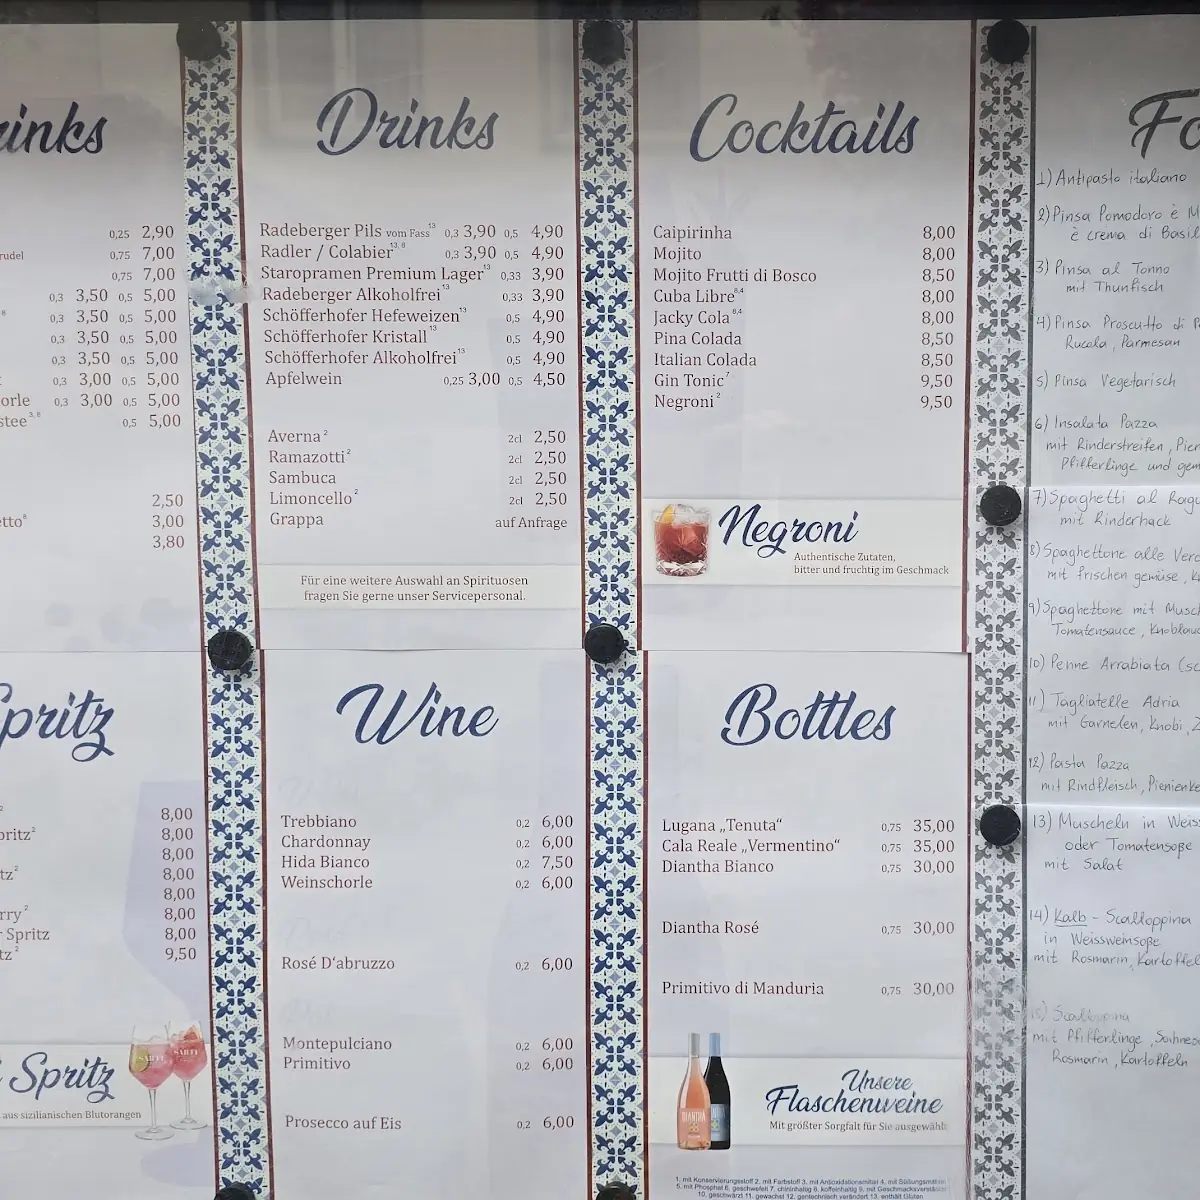 rinks
0,25 2,90
rudel 0,75 7,00
0,75 7,00
0,3 3,50 0,5 5,00
8 0,3 3,50 0,5 5,00
0,3 3,50 0,5 5,00
0,3 3,50 0,5 5,00
0,3 3,00 0,5 5,00
orle 0,3 3,00 0,5 5,00
stee 3, 8 0,5 5,00
2,50
etto 8 3,00
3,80
Drinks
Radeberger Pils vom Fass 13 0,3 3,90 0,5 4,90
Radler / Colabier 13, 8 0,3 3,90 0,5 4,90
Staropramen Premium Lager 13 0,33 3,90
Radeberger Alkoholfrei 13 0,33 3,90
Schöfferhofer Hefeweizen 13 0,5 4,90
Schöfferhofer Kristall 13 0,5 4,90
Schöfferhofer Alkoholfrei 13 0,5 4,90
Apfelwein 0,25 3,00 0,5 4,50
Averna 2 2cl 2,50
Ramazotti 2 2cl 2,50
Sambuca 2cl 2,50
Limoncello 2 2cl 2,50
Grappa auf Anfrage
Für eine weitere Auswahl an Spirituosen
fragen Sie gerne unser Servicepersonal.
Cocktails
Caipirinha 8,00
Mojito 8,00
Mojito Frutti di Bosco 8,50
Cuba Libre 8,4 8,00
Jacky Cola 8,4 8,00
Pina Colada 8,50
Italian Colada 8,50
Gin Tonic 7 9,50
Negroni 2 9,50
Negroni
Authentische Zutaten,
bitter und fruchtig im Geschmack
Fo
1) Antipasto italiano
2) Pinsa Pomodoro è M
è crema di Basil
3) Pinsa al Tonno
mit Thunfisch
4) Pinsa Proscutto di P
Rucola, Parmesan
5) Pinsa Vegetarisch
6) Insalata Pazza
mit Rinderstreifen, Pien
Pfifferlinge und gem
7) Spaghetti al Ragu
mit Rinderhack
8) Spaghettone alle Verd
mit frischen gemüse, K
9) Spaghettone mit Musch
Tomatensauce, Knoblau
10) Penne Arrabiata (sc
11) Tagliatelle Adria
mit Garnelen, Knobi, Z
12) Pasta Pazza
mit Rindfleisch, Pienienke
13) Muscheln in Weiss
oder Tomatensoße
mit Salat
14) Kalb - Scalloppina
in Weissweinsoße
mit Rosmarin, Kartoffel
15) Scaloppina
mit Pfifferlinge, Sahneso
Rosmarin, Kartoffeln
Spritz
2 8,00
pritz 2 8,00
8,00
tz 2 8,00
8,00
rry 2 8,00
r Spritz 8,00
tz 2 9,50
i Spritz
aus sizilianischen Blutorangen
Wine
Trebbiano 0,2 6,00
Chardonnay 0,2 6,00
Hida Bianco 0,2 7,50
Weinschorle 0,2 6,00
Rosé D'abruzzo 0,2 6,00
Montepulciano 0,2 6,00
Primitivo 0,2 6,00
Prosecco auf Eis 0,2 6,00
Bottles
Lugana „Tenuta“ 0,75 35,00
Cala Reale „Vermentino“ 0,75 35,00
Diantha Bianco 0,75 30,00
Diantha Rosé 0,75 30,00
Primitivo di Manduria 0,75 30,00
Unsere
Flaschenweine
Mit größter Sorgfalt für Sie ausgewählt
1. mit Konservierungsstoff 2. mit Farbstoff 3. mit Antioxidationsmittel 4. mit Süßungsmitteln
5. mit Phosphat 6. geschwefelt 7. chininhaltig 8. koffeinhaltig 9. mit Geschmacksverstärker
10. geschwärzt 11. gewachst 12. gentechnisch verändert 13. enthält Gluten